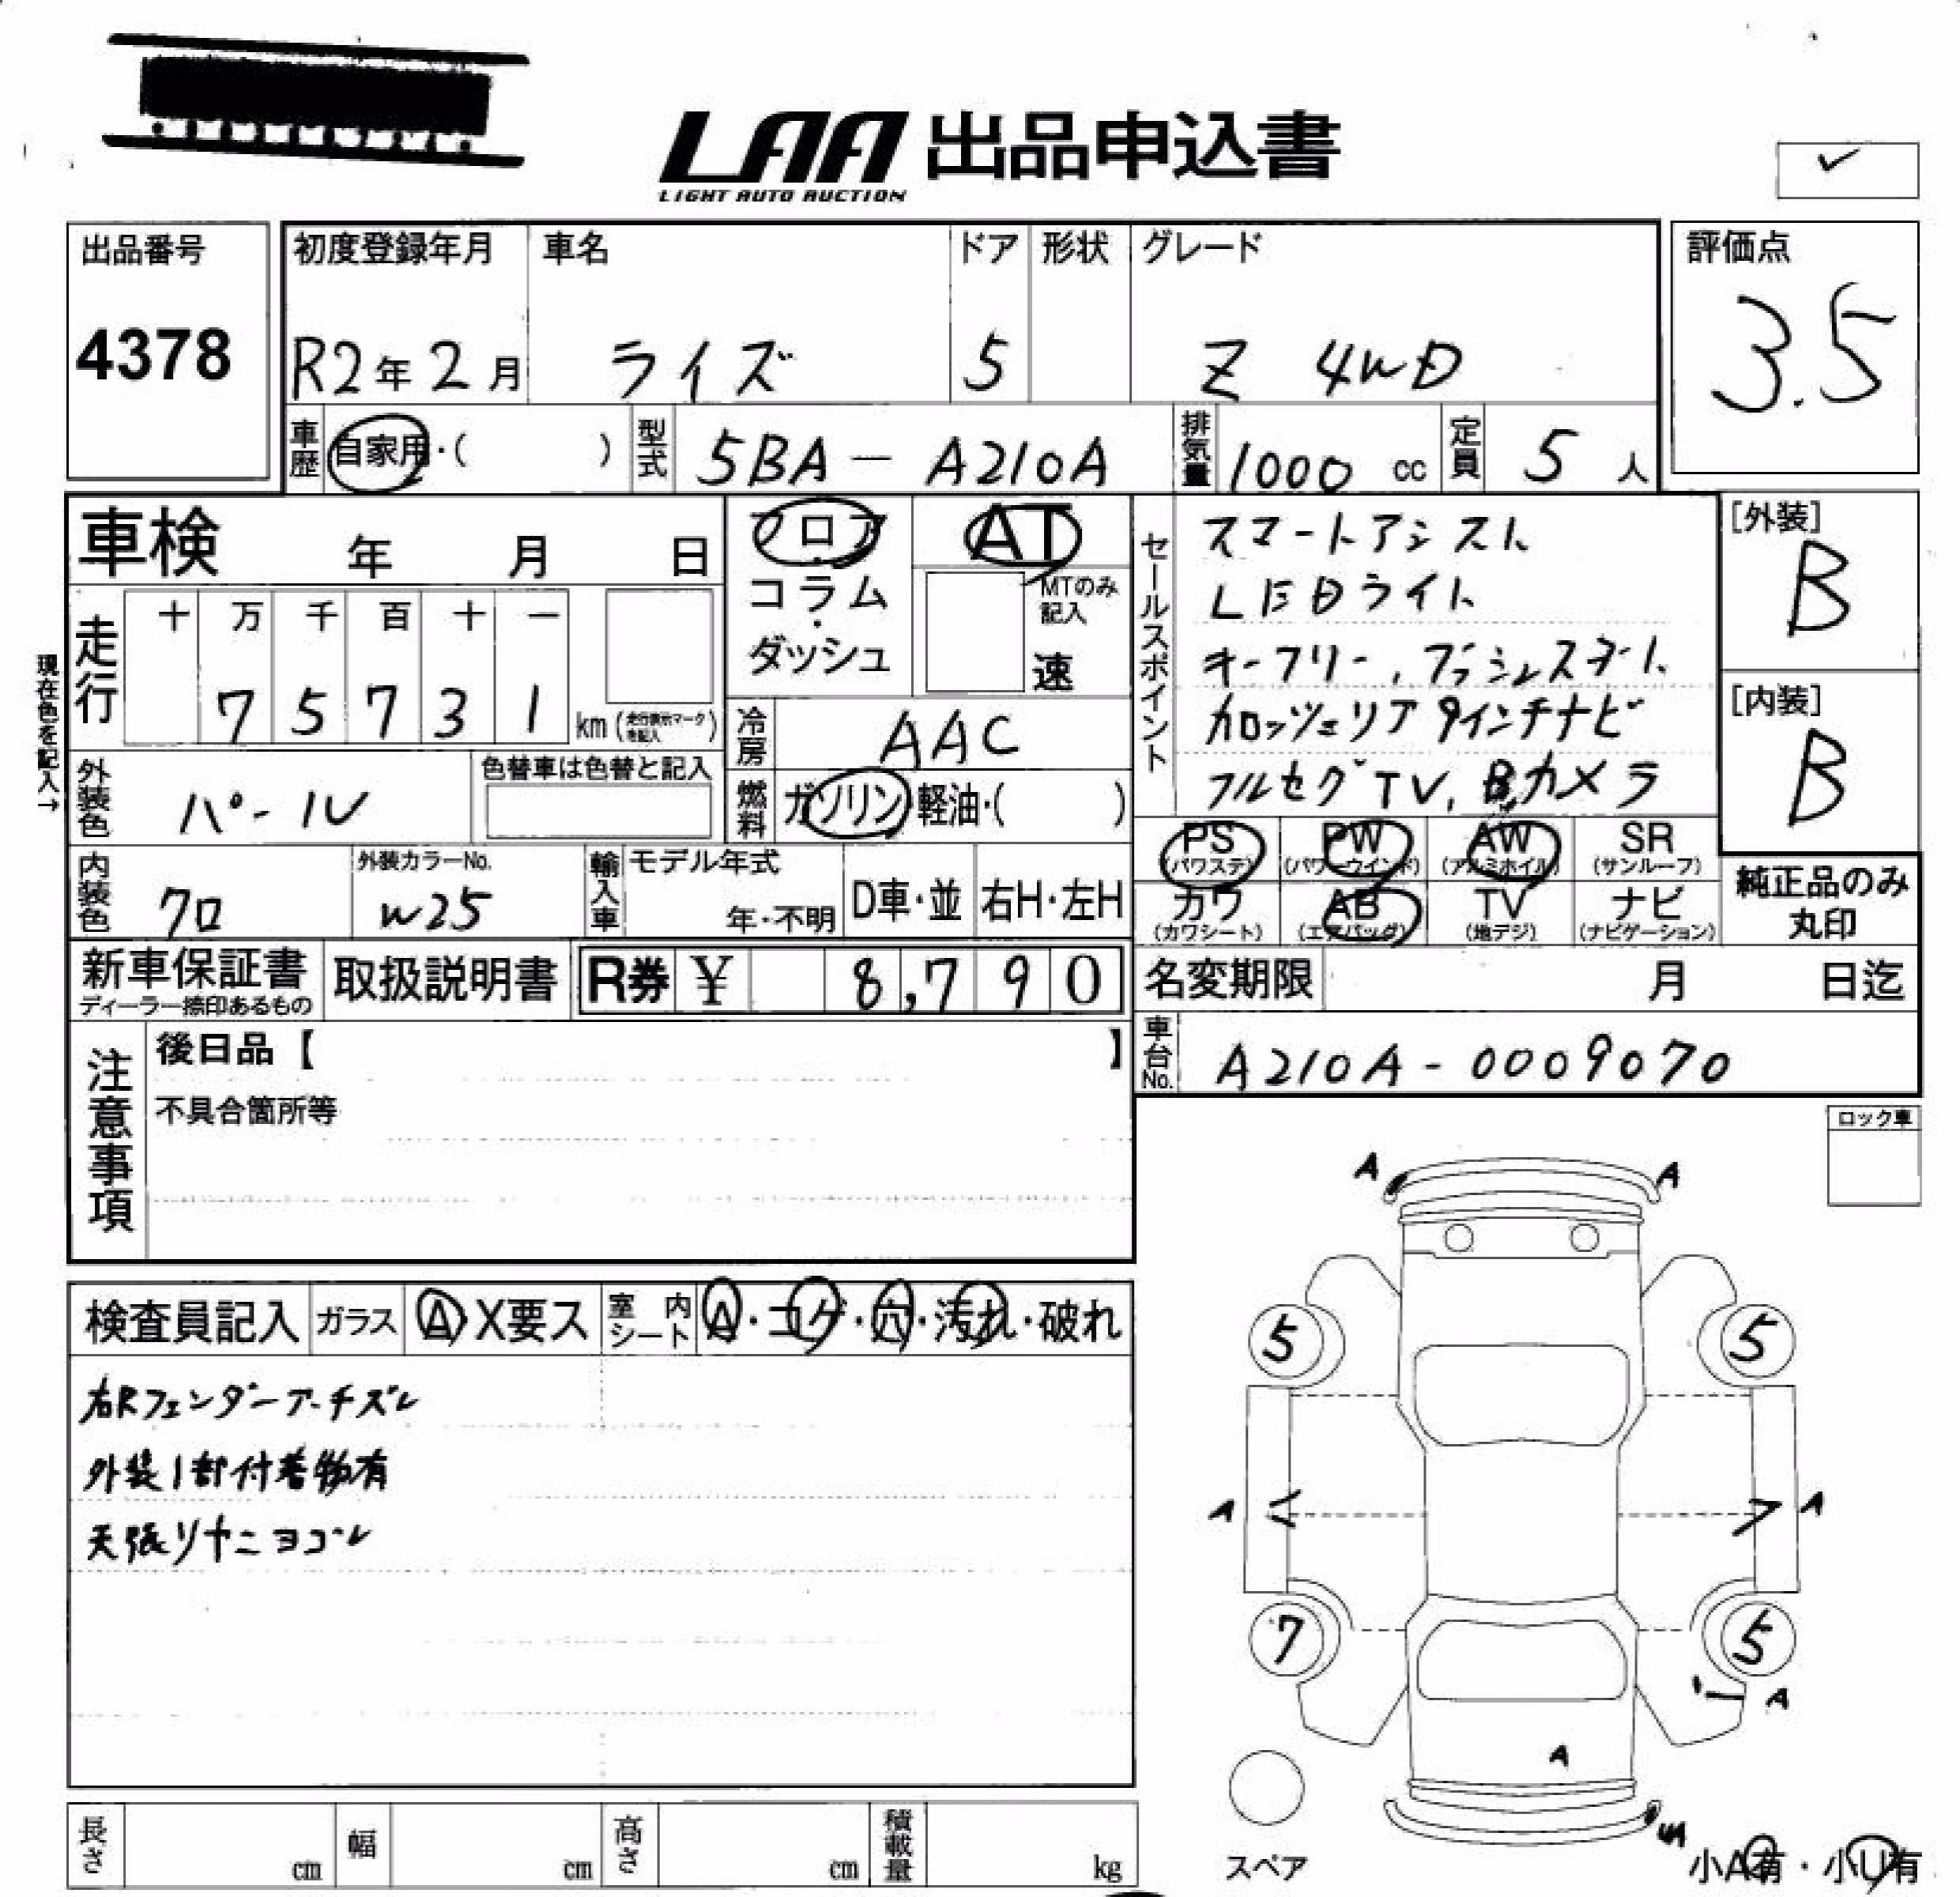 LAA 出品申込書
LIGHT AUTO AUCTION
✓
出品番号
4378
初度登録年月 車名 ドア 形状 グレード
R2年2月 ライズ 5 Z 4WD
評価点
3.5
車歴 自家用・( ) 型式 5BA-A210A 排気量 1000 cc 定員 5 人
車検 年 月 日
フロア・コラム・ダッシュ
AT
MTのみ記入
速
現在色を記入→
走行 十 万 千 百 十 一
7 5 7 3 1 km (走行表示マークを記入)
冷房 AAC
外装色 パール
色替車は色替と記入
燃料 ガソリン・軽油・( )
セールスポイント
スマートアシスト
LEDライト
キーフリー、プッシュスタート
カロッツェリア 9インチナビ
フルセグTV、Bカメラ
[外装]
B
[内装]
B
PS (パワステ) PW (パワーウインド) AW (アルミホイル) SR (サンルーフ)
カワ (カワシート) AB (エアバッグ) TV (地デジ) ナビ (ナビゲーション)
純正品のみ
丸印
内装色 クロ
外装カラーNo.
W25
輸入車 モデル年式
年・不明 D車・並 右H・左H
新車保証書
ディーラー捺印あるもの
取扱説明書
R券 ¥ 8,790
名変期限 月 日迄
車台No. A210A-0009070
注意事項
後日品【 】
不具合箇所等
ロック車
検査員記入 ガラス A X要ス 室内シート A・コゲ・穴・汚れ・破れ
右Rフェンダーアーチズレ
外装1部付着物有
天張リヤニヨゴレ
A A
5 5
A A
7 5
A
A
スペア
小A有・小U有
長さ cm 幅 cm 高さ cm 積載量 kg